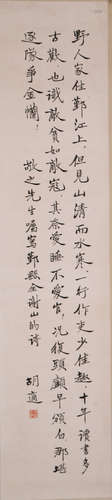 野人家住鄞江上但見山清而水寒一行作吏少佳趣十年讀書多
古歡也識敵貧如敵寇其奈愛睡不愛官況復頭顱早頒白那堪
逐隊爭金襴
敬之先生囑寫鄞縣全謝山的詩
胡適